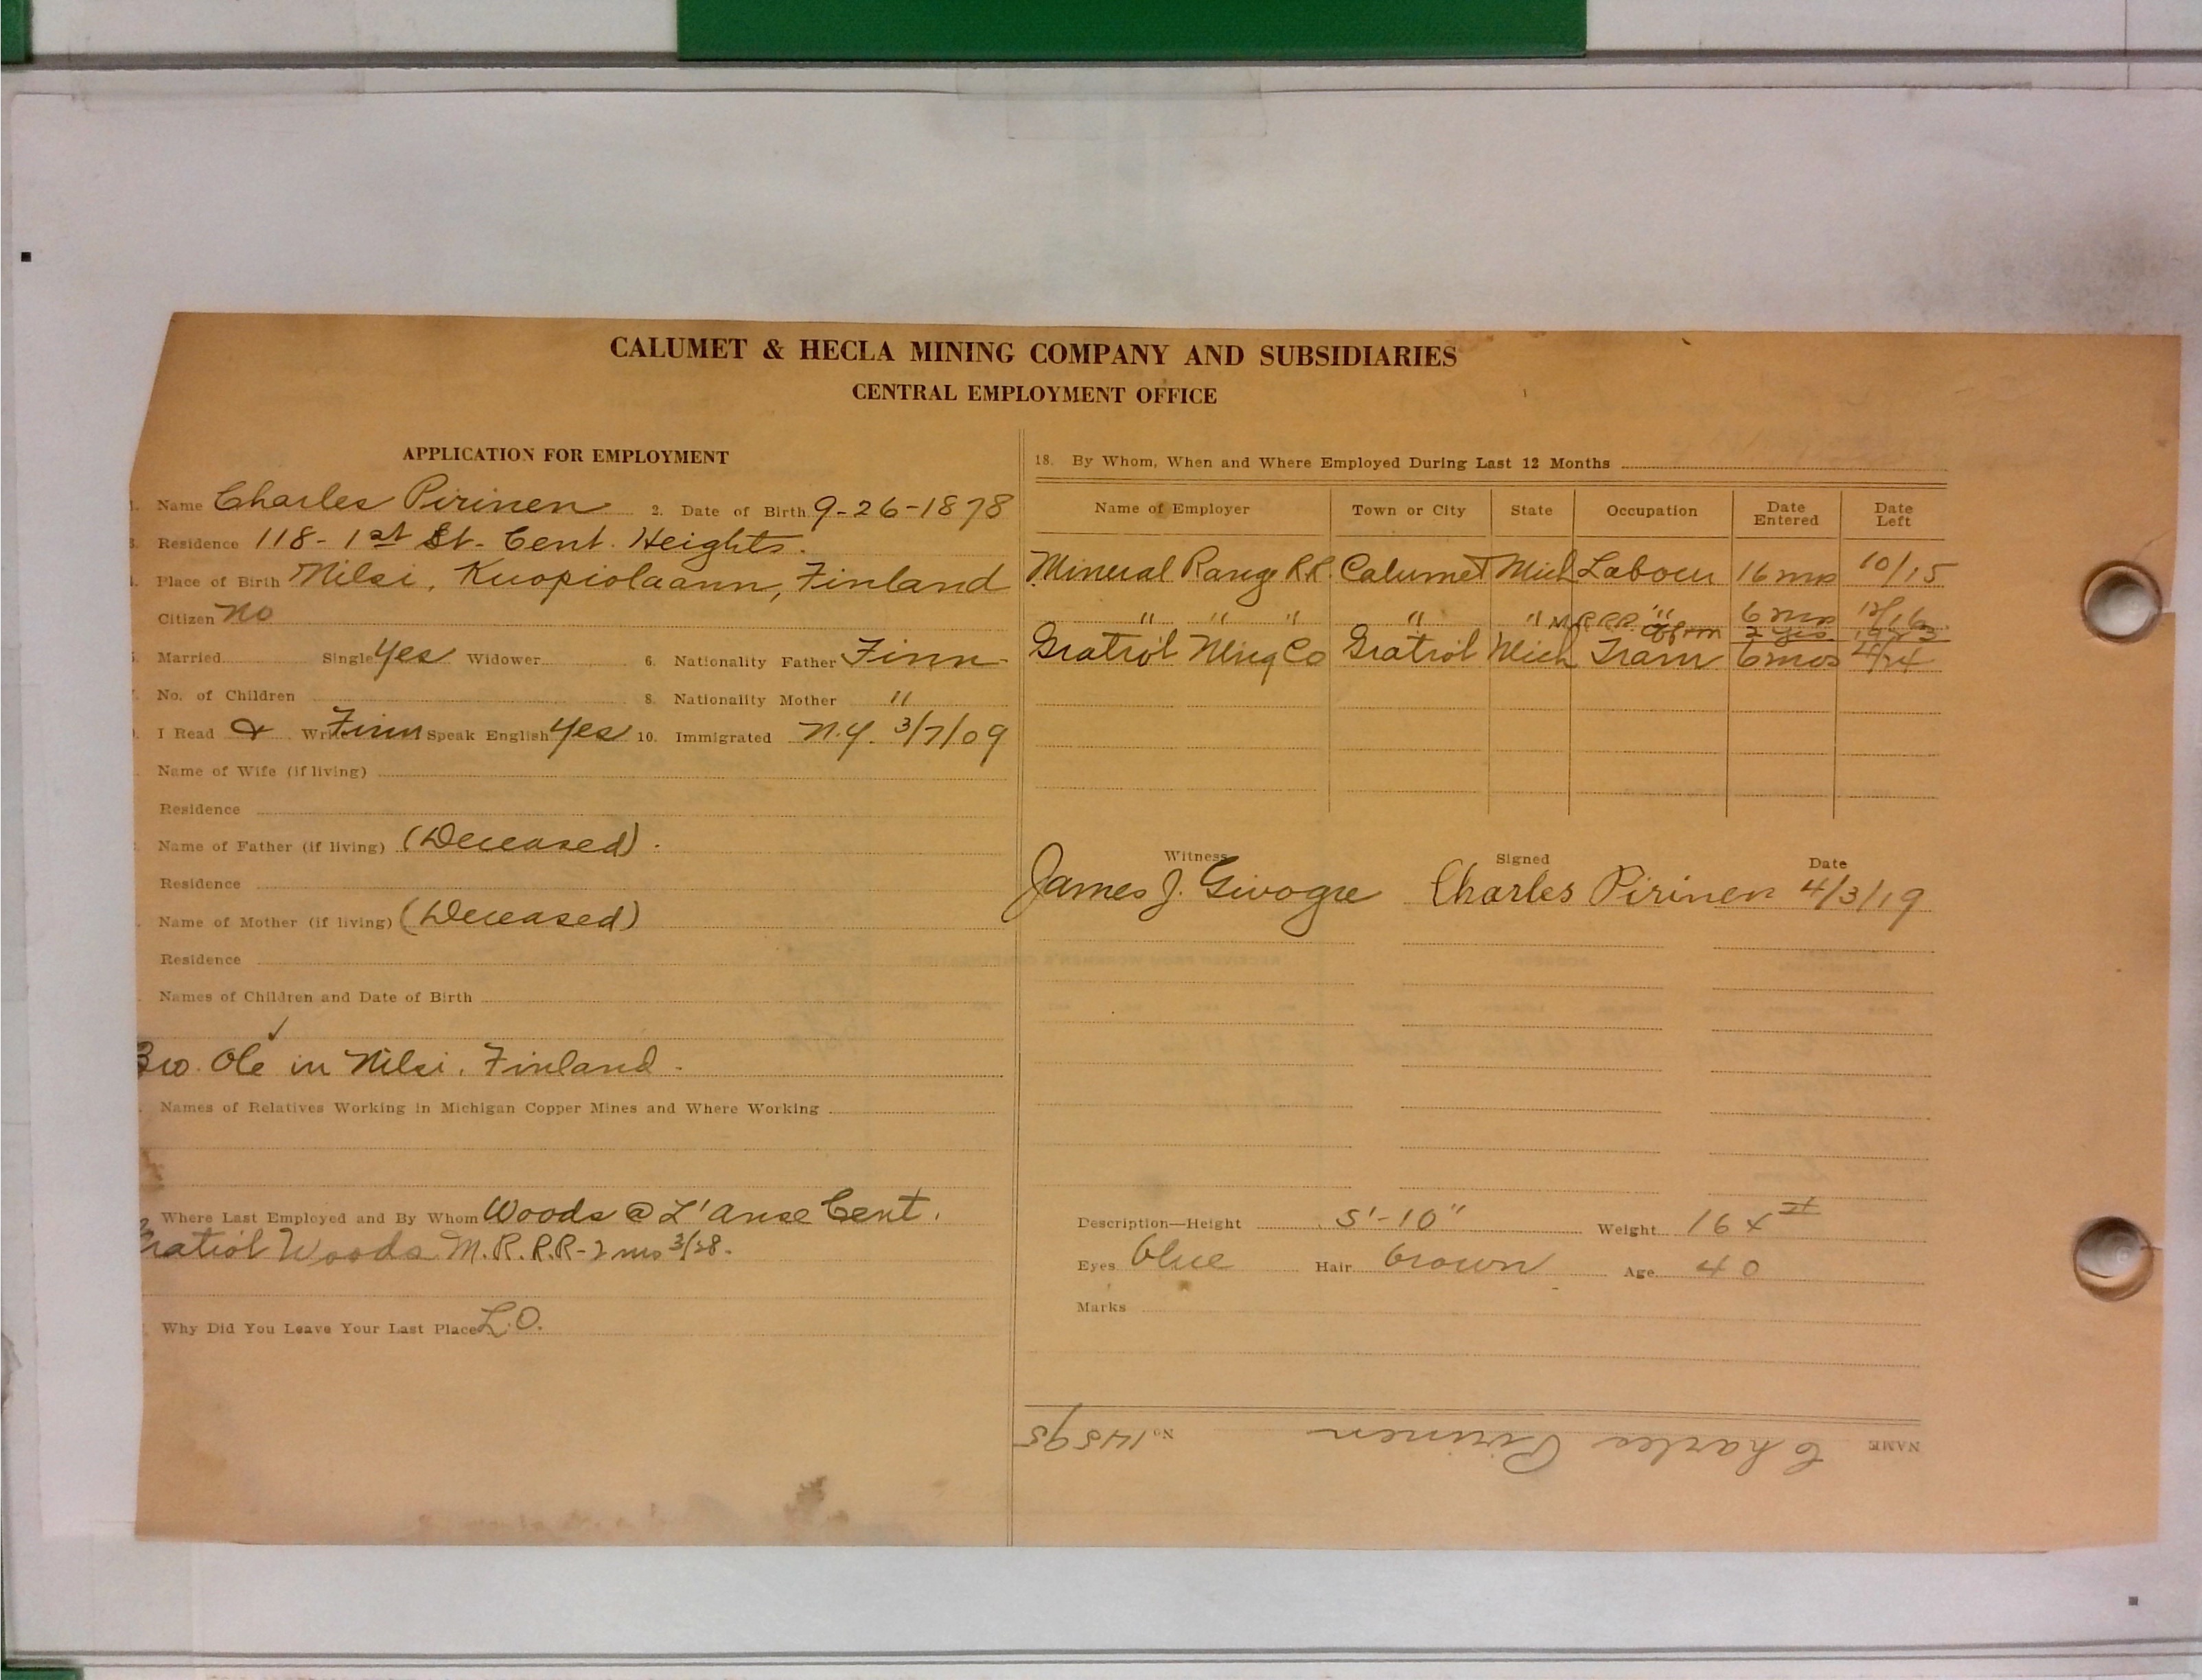 CALUMET & HECLA MINING COMPANY AND SUBSIDIARIES
CENTRAL EMPLOYMENT OFFICE
APPLICATION FOR EMPLOYMENT
Name Charles Pirinen 2. Date of Birth 9-26-1878
Residence 118 - 1st St. Cent. Heights.
Place of Birth Nilsi, Kuopiolaann, Finland
Citizen No
Married Single Yes Widower 6. Nationality Father Finn
No. of Children 8. Nationality Mother "
I Read & Write Finn Speak English Yes 10. Immigrated N.Y. 3/7/09
Name of Wife (if living)
Residence
Name of Father (if living) (Deceased).
Residence
Name of Mother (if living) (Deceased)
Residence
Names of Children and Date of Birth
Bro. Ole in Nilsi, Finland.
Names of Relatives Working in Michigan Copper Mines and Where Working
Where Last Employed and By Whom Woods @ L'anse Cent.
Gratiot Woods M.R.R.R - 2 mos 3/28.
Why Did You Leave Your Last Place L.O.
18. By Whom, When and Where Employed During Last 12 Months
Name of Employer Town or City State Occupation Date Entered Date Left
Mineral Range R.R. Calumet Mich Labour 16 mos 10/15
" " " " " " 6 mos 12/16
M.R.R.R. 2 yrs
Gratiot Ming Co Gratiot Mich Tram 6 mos 4/24
Witness Signed Date
James J. Givogre Charles Pirinen 4/3/19
Description—Height 5'-10" Weight 164
Eyes blue Hair brown Age 40
Marks
NAME Charles Pirinen No. 14595